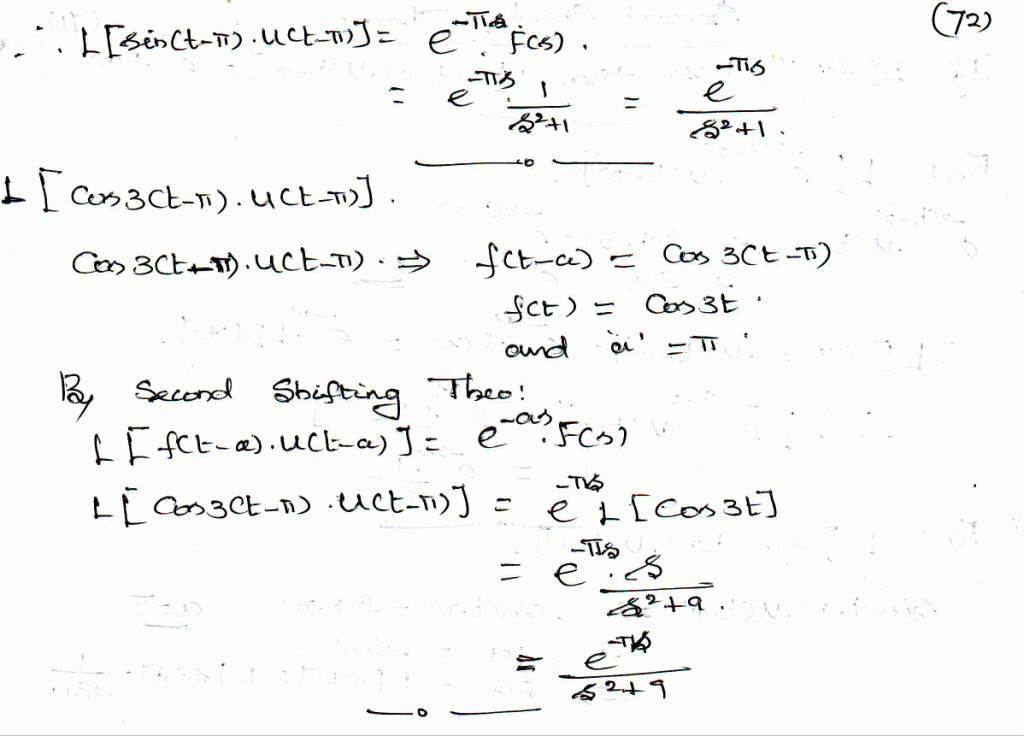 (72)
∴ L[sin(t-π).u(t-π)] = e^{-πs}.F(s).
= e^{-πs}.1/(s²+1) = e^{-πs}/(s²+1).
L[Cos3(t-π).u(t-π)].
Cos3(t-π).u(t-π). ⇒ f(t-a) = Cos3(t-π)
f(t) = Cos3t.
and 'a' = π
By Second Shifting Theo:
L[f(t-a).u(t-a)] = e^{-as}.F(s)
L[Cos3(t-π).u(t-π)] = e^{-πs} L[Cos3t]
= e^{-πs}.s/(s²+9).
= e^{-πs}/(s²+9)